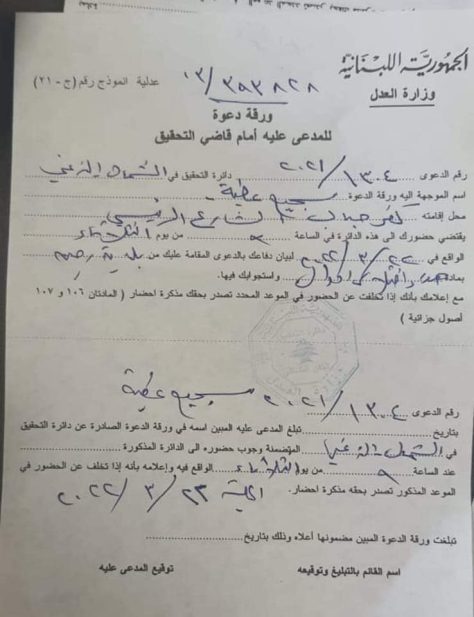 الجمهوريّة اللبنانيّة
وزارة العدل
عدلية النموذج رقم (ج - ٢١)
ورقة دعوة
للمدعى عليه أمام قاضي التحقيق
رقم الدعوى ١٣٠٤/٢٠٢١ دائرة التحقيق في الشمال
اسم الموجهة اليه ورقة الدعوة سميح عطية
محل إقامته الشارع الرئيسي
يقتضي حضورك الى هذه الدائرة في الساعة ٩ من يوم الثلاثاء
الواقع في ٢٠٢٢/٣/ لبيان دفاعك بالدعوى المقامة عليك من بلدية
بمادة واستجوابك فيها.
مع إعلامك بأنك إذا تخلفت عن الحضور في الموعد المحدد تصدر بحقك مذكرة احضار ( المادتان ١٠٦ و ١٠٧
أصول جزائية )
رقم الدعوى ١٣٠٤/٢٠٢١ سميح عطية
بتاريخ تبلغ المدعى عليه المبين اسمه في ورقة الدعوة الصادرة عن دائرة التحقيق
في الشمال المتضمنة وجوب حضوره الى الدائرة المذكورة
عند الساعة ٩ من يوم الثلاثاء الواقع فيه وإعلامه بأنه إذا تخلف عن الحضور في
الموعد المذكور تصدر بحقه مذكرة احضار. ٢٣/٣/٢٠٢٢
تبلغت ورقة الدعوة المبين مضمونها أعلاه وذلك بتاريخ
اسم القائم بالتبليغ وتوقيعه
توقيع المدعى عليه